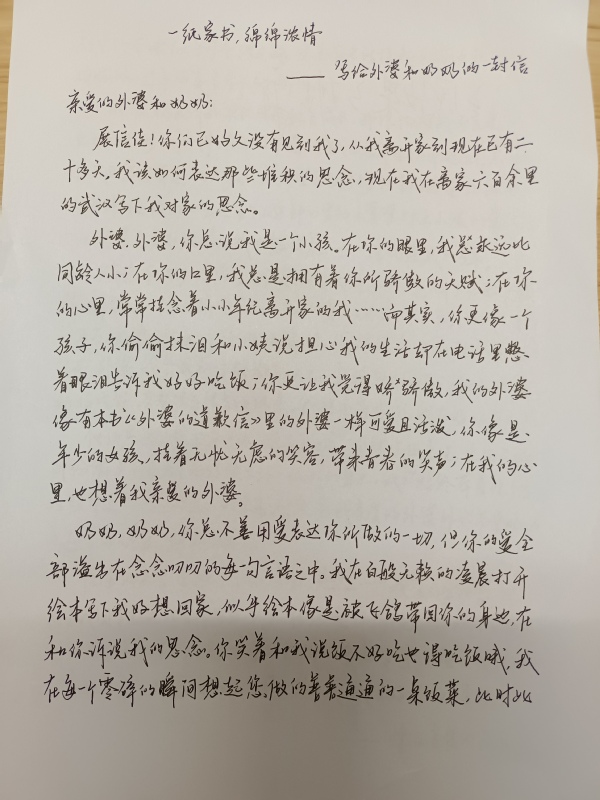 一纸家书,绵绵浓情
——写给外婆和奶奶的一封信
亲爱的外婆和奶奶:
展信佳!你们已好久没有见到我了,从我离开家到现在已有二
十多天。我该如何表达那些堆积的思念,现在我在离家六百余里
的武汉写下我对家的思念。
外婆,外婆,你总说我是一个小孩。在你的眼里,我总永远比
同龄人小;在你的口里,我总是拥有着你所骄傲的天赋;在你
的心里,常常挂念着小小年纪离开家的我……而其实,你更像一个
孩子,你偷偷抹泪和小姨说担心我的生活却在电话里憋
着眼泪告诉我好好吃饭;你更让我觉得骄傲,我的外婆
像有本书《外婆的道歉信》里的外婆一样可爱且活泼,你像是
年少的女孩,挂着无忧无虑的笑容,带来青春的笑声;在我的心
里,也想着我亲爱的外婆。
奶奶,奶奶,你总不善用爱表达你所做的一切,但你的爱全
部溢出在念念叨叨的每一句言语之中。我在百般无赖的凌晨打开
绘本写下我好想回家,似乎绘本像是被飞鸽带回你的身边,在
和你诉说我的思念。你笑着和我说饭不好吃也得吃饭哦,我
在每一个零碎的瞬间想起您做的普普通通的一桌饭菜,此时此